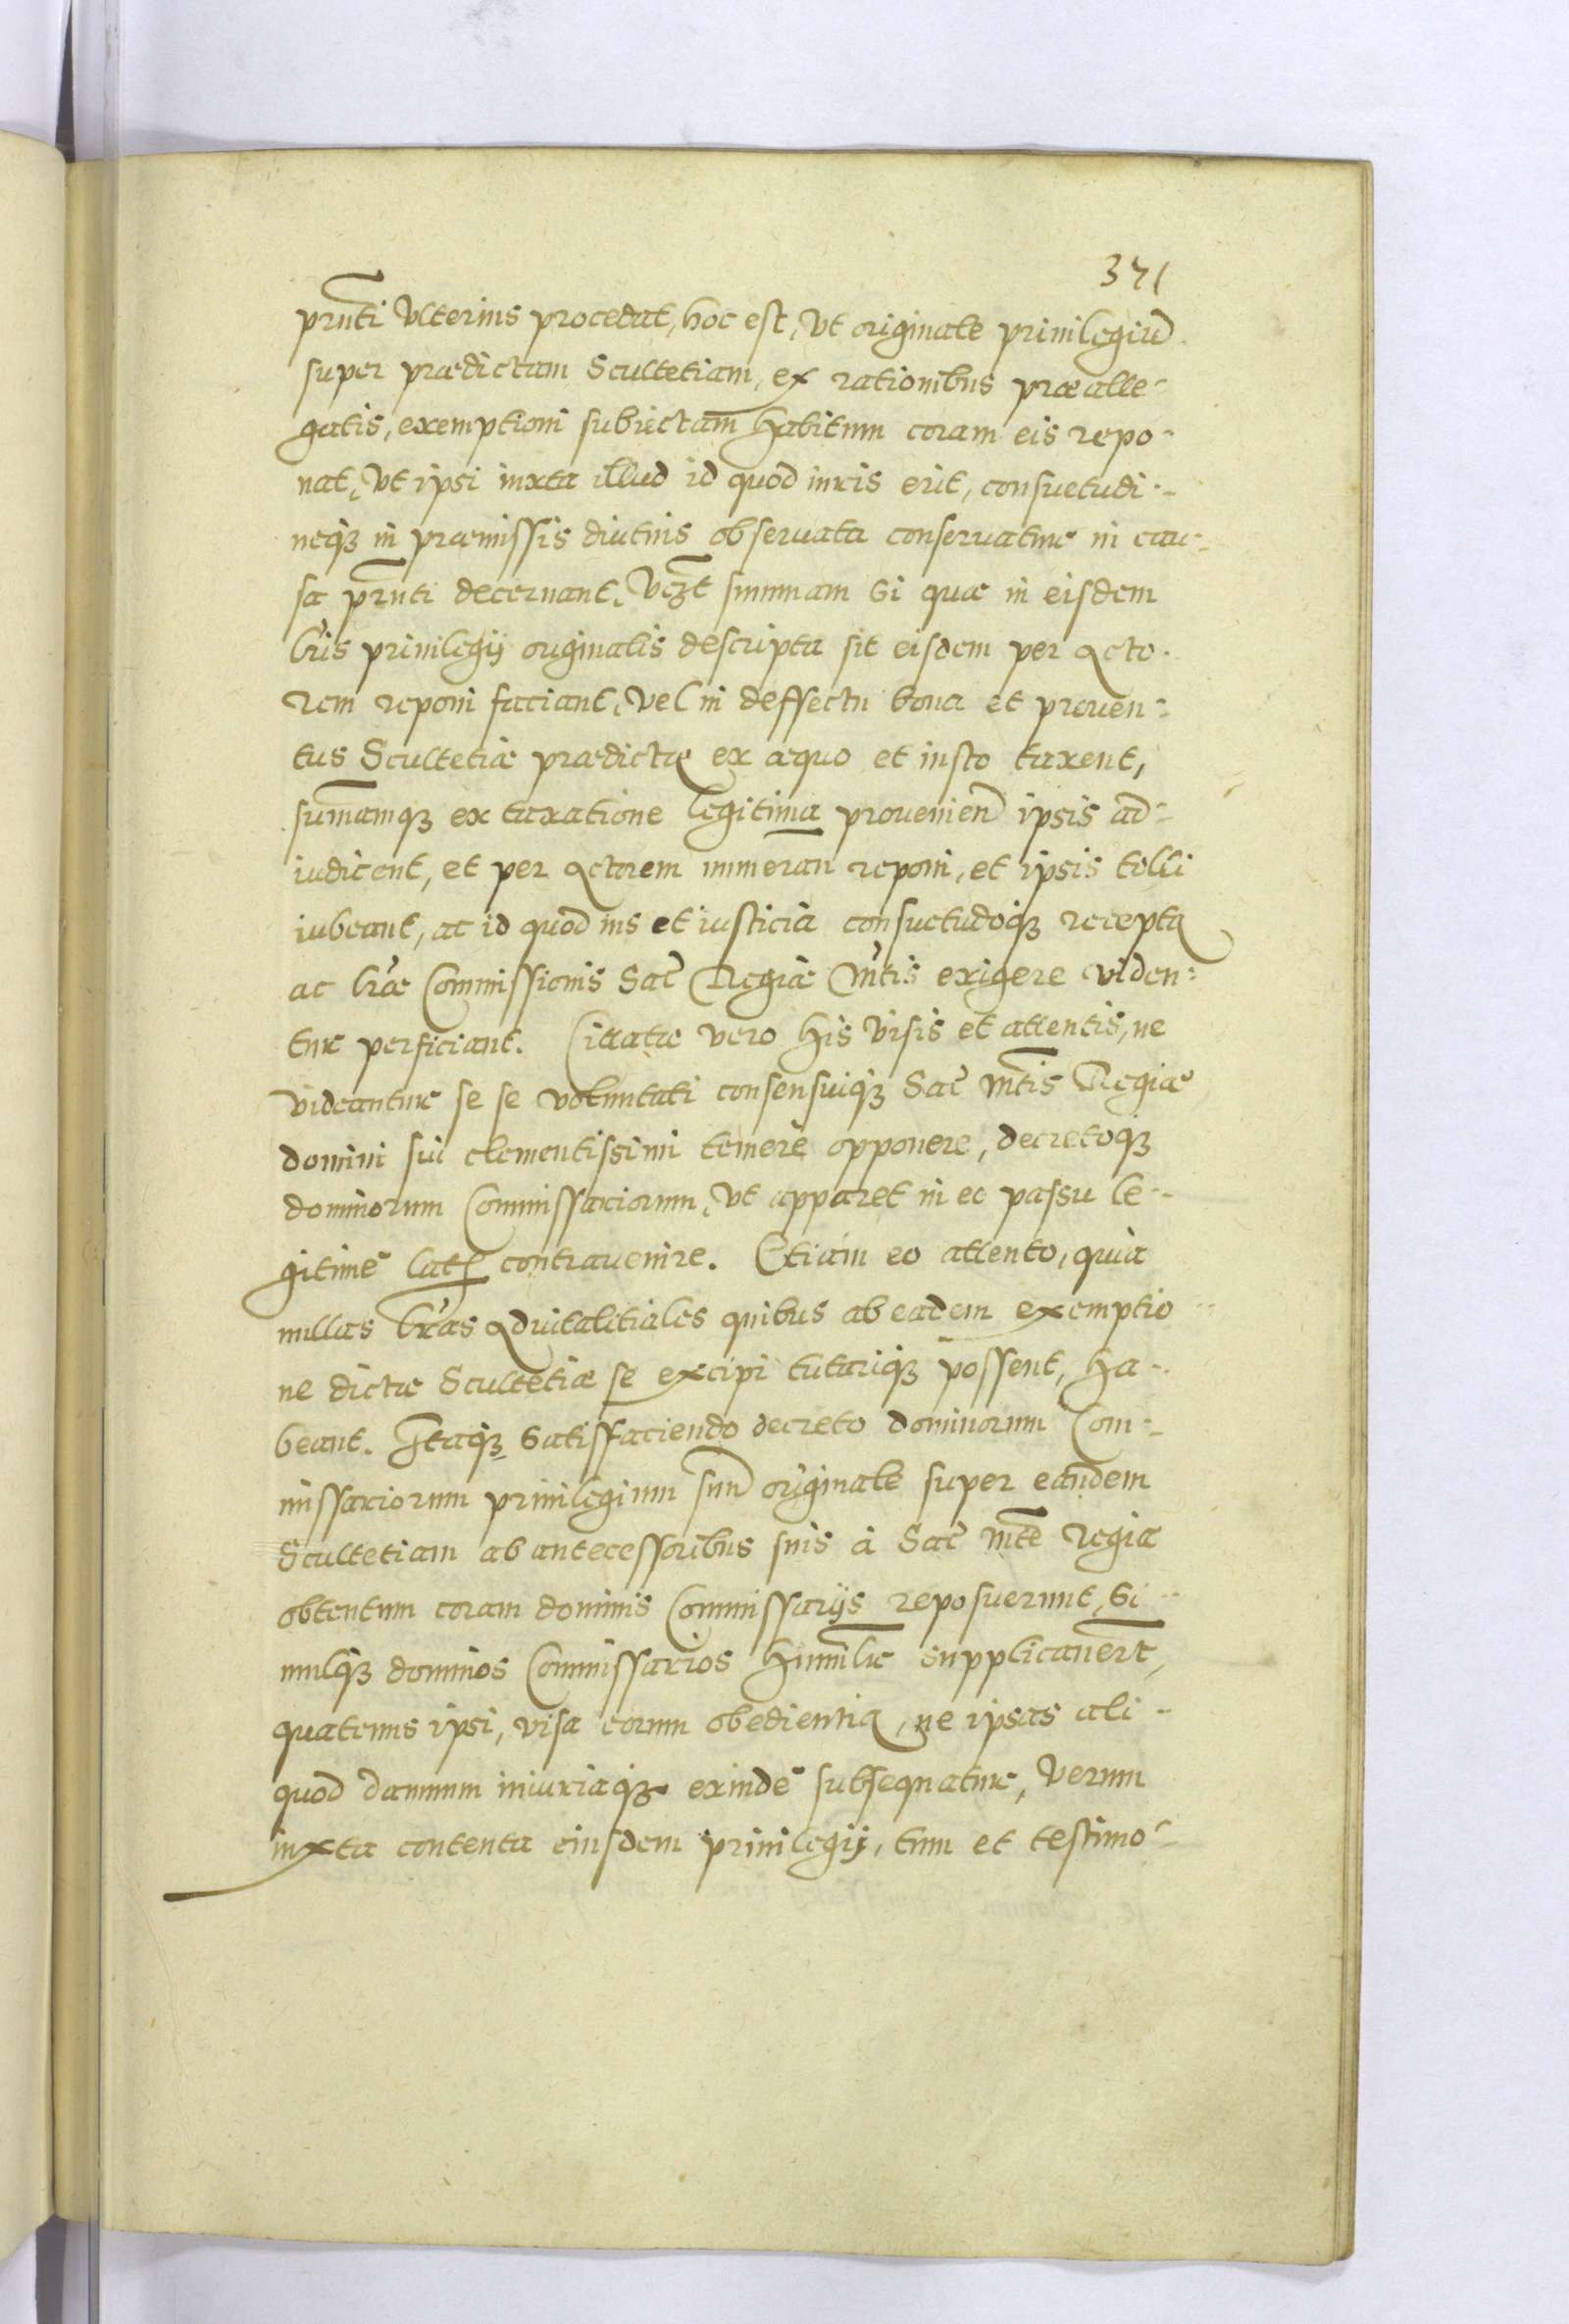 371
prnti vlterius procedat, hoc est, vt originale priuilegiũ
super prædictam Scultetiam, ex rationibus præalle-
gatis, exemptioni subiectam habitum coram eis repo-
nat, vt ipsi iuxta illud id quod iuris erit, consuetudi-
neq3 in præmissis diutius obseruata conseruatur in cau-
sa prnti decernant, vz3t summam si quæ in eisdem
lris priuilegij originalis descripta sit eisdem per acto-
rem reponi faciant, vel in deffectu bona et prouen-
tus Scultetiæ prædictæ ex æquo et iusto taxent,
sum̄amq3 ex taxatione legitima prouenien̄ ipsis ad-
iudicent, et per actorem numeran reponi, et ipsis tolli
iubeant, ac id quod ius et iusticia consuetudoq3 recepta
ac lræ Commissionis Sac̄ Regiæ Mtis exigere viden-
tur perficiant. Cittatæ vero his visis et attentis, ne
videantur se se voluntati consensuiq3 Sac̄ Mtis Regiæ
domini sui clementissimi temerè opponere, decretoq3
dominorum Commissariorum, vt apparet in eo passu le-
gitimè lat contrauenire. Etiam eo attento, quia
nullas lras aduitalitiales quibus ab eadem exemptio-
ne dictæ Scultetiæ se excipi tutariq3 possent, ha-
beant. Itaq3 satisfaciendo decreto dominorum Com-
missariorum priuilegium suũ originale super eandem
Scultetiam ab antecessoribus suis à Sac̄ Mte Regia
obtentum coram dominis Commissarijs reposuerunt, si-
mulq3 dominos Commissarios humilr supplicauert,
quatenus ipsi, visa eorum obedientia, ne ipsas ali-
quod damnum iniuriaq3 exindè subsequatur, verum
iuxta contenta eiusdem priuilegij, tum et testimo-